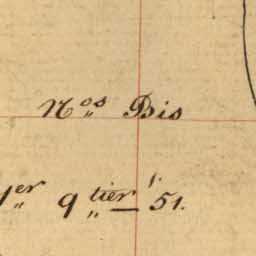 Nos Bis
1er 9 tier 51.